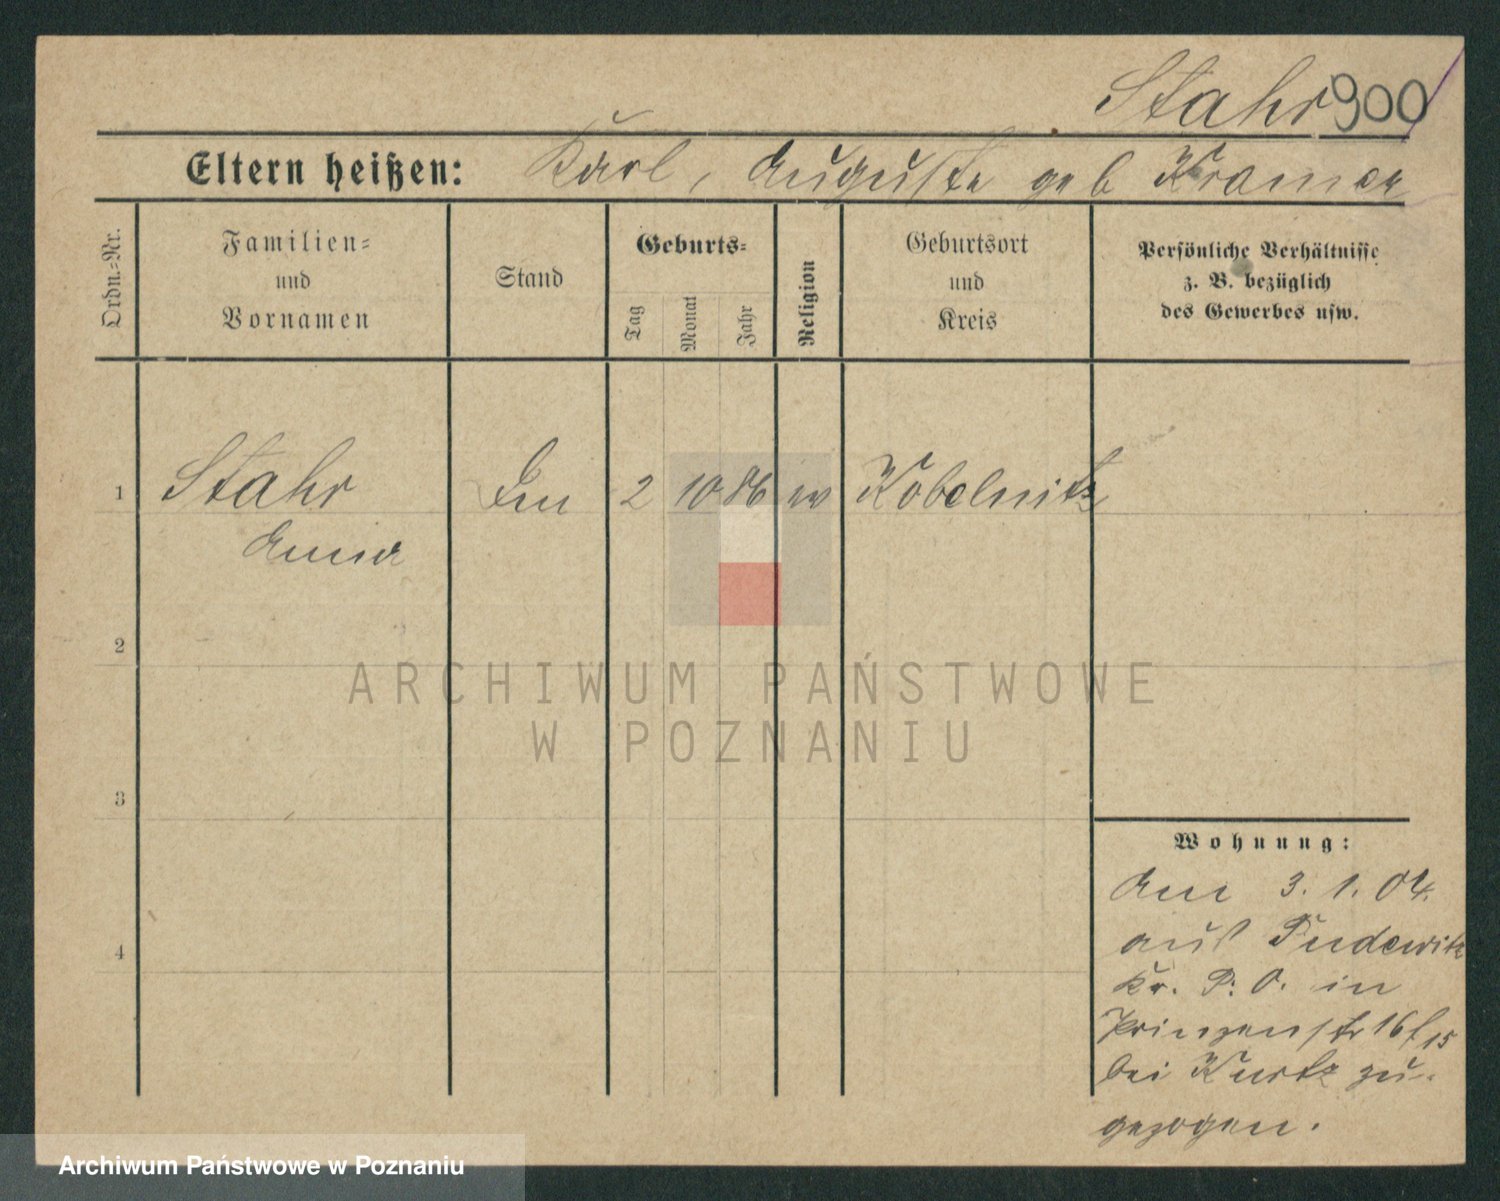 Stahr 900
Eltern heißen: Karl, Auguste geb Kramer
Ordn.-Nr.
Familien-
und
Vornamen
Stand
Geburts-
Tag
Monat
Jahr
Religion
Geburtsort
und
Kreis
Persönliche Verhältnisse
z. B. bezüglich
des Gewerbes usw.
1 Stahr 2 10 86 ev Kobelnitz
Anna
2
3
4
Wohnung:
Am 3. 1. 04.
aus Pudewitz
Kr. P. O. in
Prinzenstr 16
bei Kurtz zu-
gezogen.
ARCHIWUM PAŃSTWOWE
W POZNANIU
Archiwum Państwowe w Poznaniu